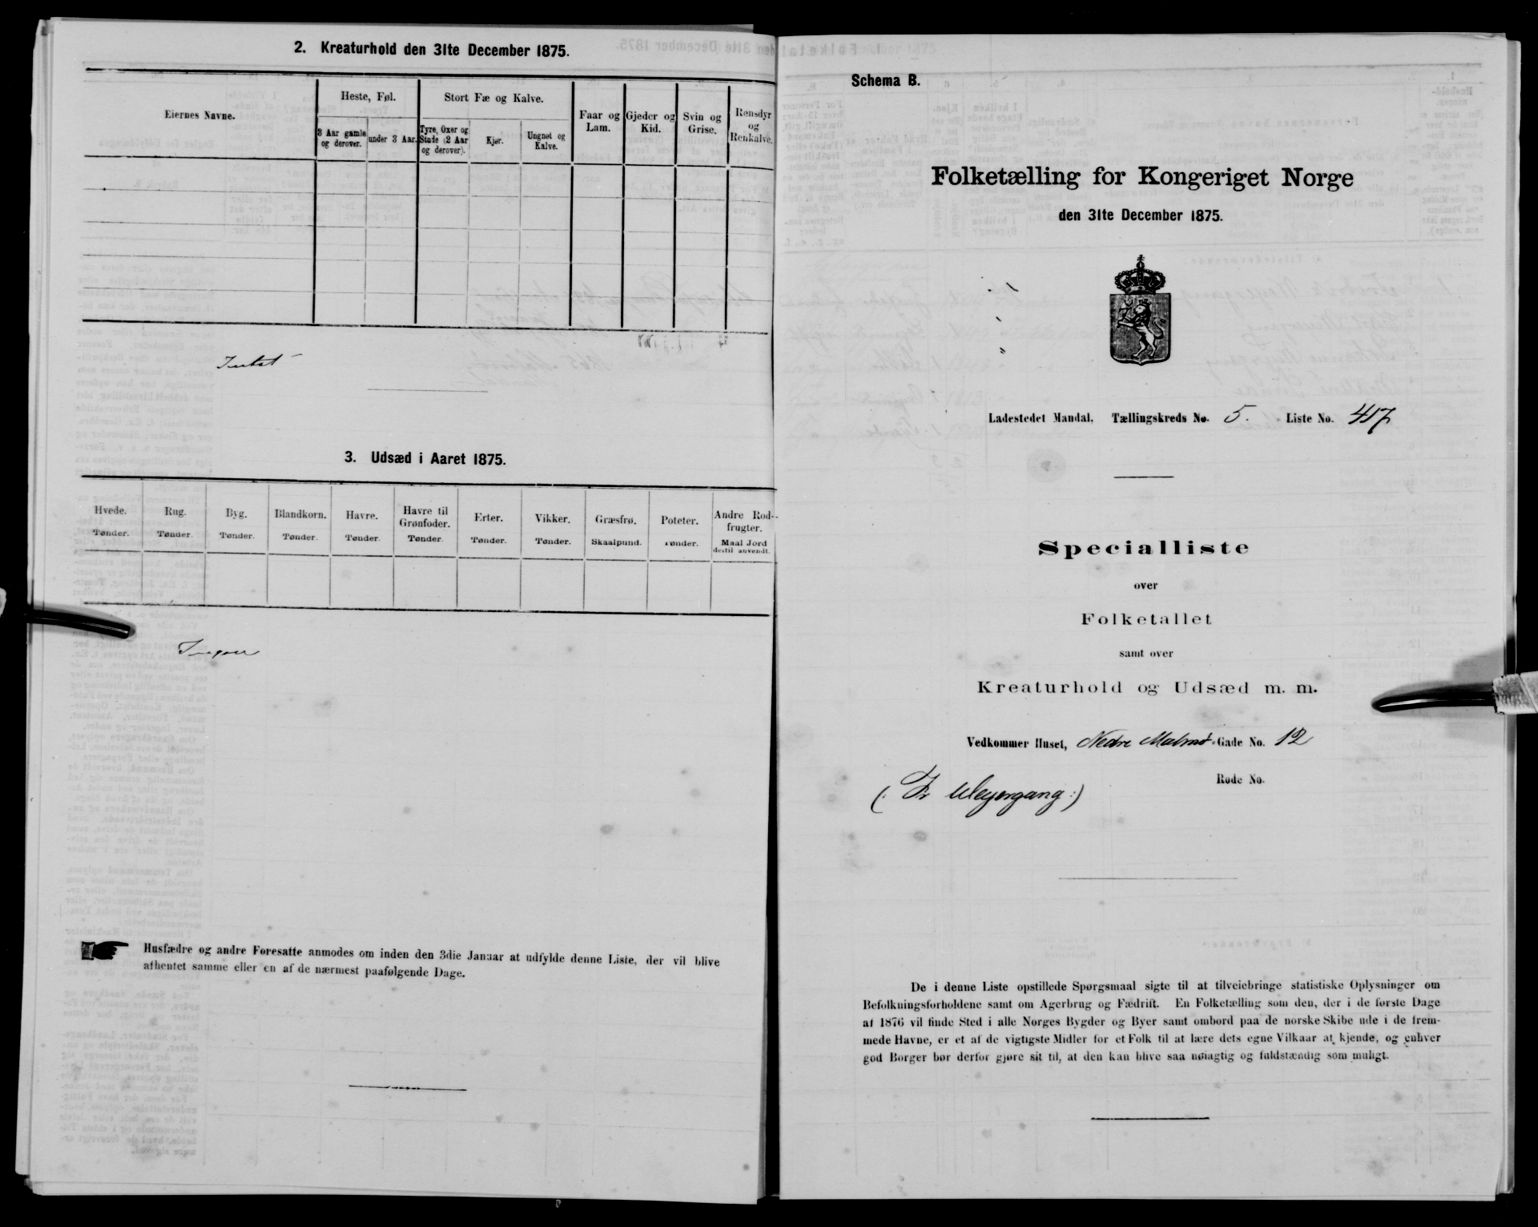 2. Kreaturhold den 31te December 1875.
Eiernes Navne.
Heste, Føl.
3 Aar gamle og derover.
under 3 Aar.
Stort Fæ og Kalve.
Tyre, Oxer og Stude (2 Aar og derover).
Kjør.
Ungnøt og Kalve.
Faar og Lam.
Gjeder og Kid.
Svin og Grise.
Rensdyr og Renkalve.
Intet
3. Udsæd i Aaret 1875.
Hvede. Rug. Byg. Blandkorn. Havre. Havre til Grønfoder. Erter. Vikker. Græsfrø. Poteter. Andre Rodfrugter.
Tønder. Tønder. Tønder. Tønder. Tønder. Tønder. Tønder. Tønder. Skaalpund. Tønder. Maal Jord dertil anvendt.
Ingen
Husfædre og andre Foresatte anmodes om inden den 3die Januar at udfylde denne Liste, der vil blive
afhentet samme eller en af de nærmest paafølgende Dage.
Schema B.
Folketælling for Kongeriget Norge
den 31te December 1875.
Ladestedet Mandal. Tællingskreds No. 5. Liste No. 417
Specialliste
over
Folketallet
samt over
Kreaturhold og Udsæd m. m.
Vedkommer Huset, Nedre Malmø Gade No. 12
Rode No.
De i denne Liste opstillede Spørgsmaal sigte til at tilveiebringe statistiske Oplysninger om
Befolkningsforholdene samt om Agerbrug og Fædrift. En Folketælling som den, der i de første Dage
af 1876 vil finde Sted i alle Norges Bygder og Byer samt ombord paa de norske Skibe ude i de frem-
mede Havne, er et af de vigtigste Midler for et Folk til at lære dets egne Vilkaar at kjende, og enhver
god Borger bør derfor gjøre sit til, at den kan blive saa nøiagtig og fuldstændig som muligt.